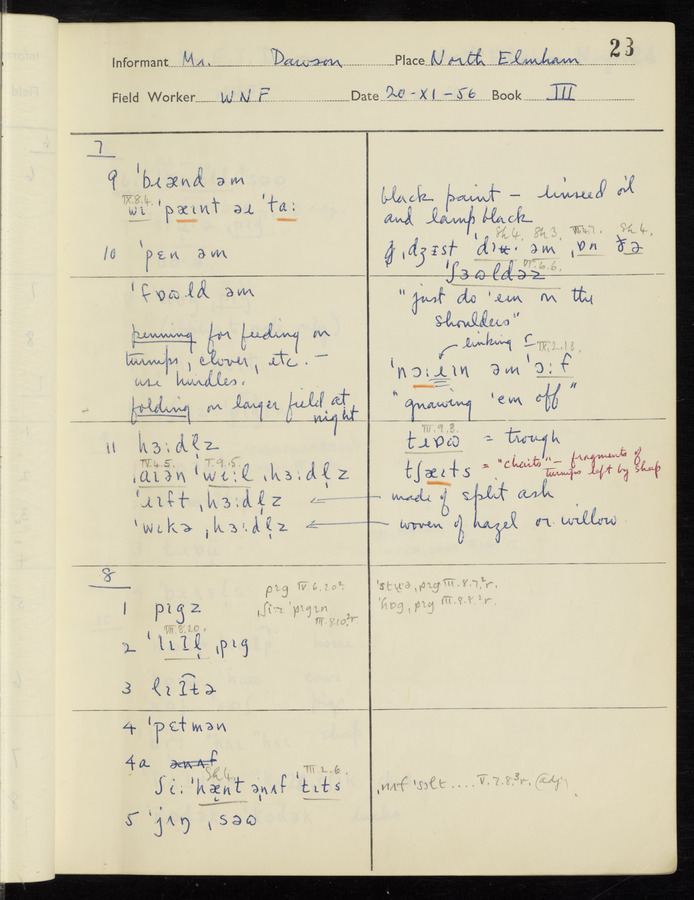 23
Informant Mr. Dawson Place North Elmham
Field Worker WNF Date 20-XI-56 Book III
7
9 ˈbɪænd əm
IX.8.4.
wɪ ˈpæɪnt əɪ ˈtaː
10 ˈpɛn əm
ˈfɒʊld əm
penning for feeding on
turnips, clover, etc. –
use hurdles.
folding on larger field at
night
11 hɜːdl̩z
IV.4.5. V.9.15
ˌaɪən ˈwiːl ˌhɜːdl̩z
ˈɪɪft ˌhɜːdl̩z
ˈwɪkə ˌhɜːdl̩z
black paint – linseed oil
and lamp black
Sh.4. Sh.3. Sh.4.
əm ˌɒn
VI.6.6.
ˈʃɜʊldəz
"just do 'em on the
shoulders"
linking r IX.2.13.
əm ˈɔːf
"gnawing 'em off"
III.9.3.
tɪɒʊ = trough
tʃæɪts = "chaits" – fragments of
turnips left by sheep
made of split ash
woven of hazel or willow
8
pɪg IV.6.20².
ʃiːz ˈpɪgɪn
III.8.10.³r.
1 pɪgz
III.8.20.
2 ˈlɪɪl̩ ˌpɪg
3 lɪɪtə
ˌpɪg III.8.7.²r.
ˈhɒg, pɪg III.8.8.²r.
4 ˈpɛtmən
4a ənʌf
Sh.4. III.2.6.
ʃiː ˈhænt ənʌf ˈtɪts
5 ˈjɪŋ ˌsəʊ
ˌnʌf ˈsɒlt .... V.7.8.³r. (adj)